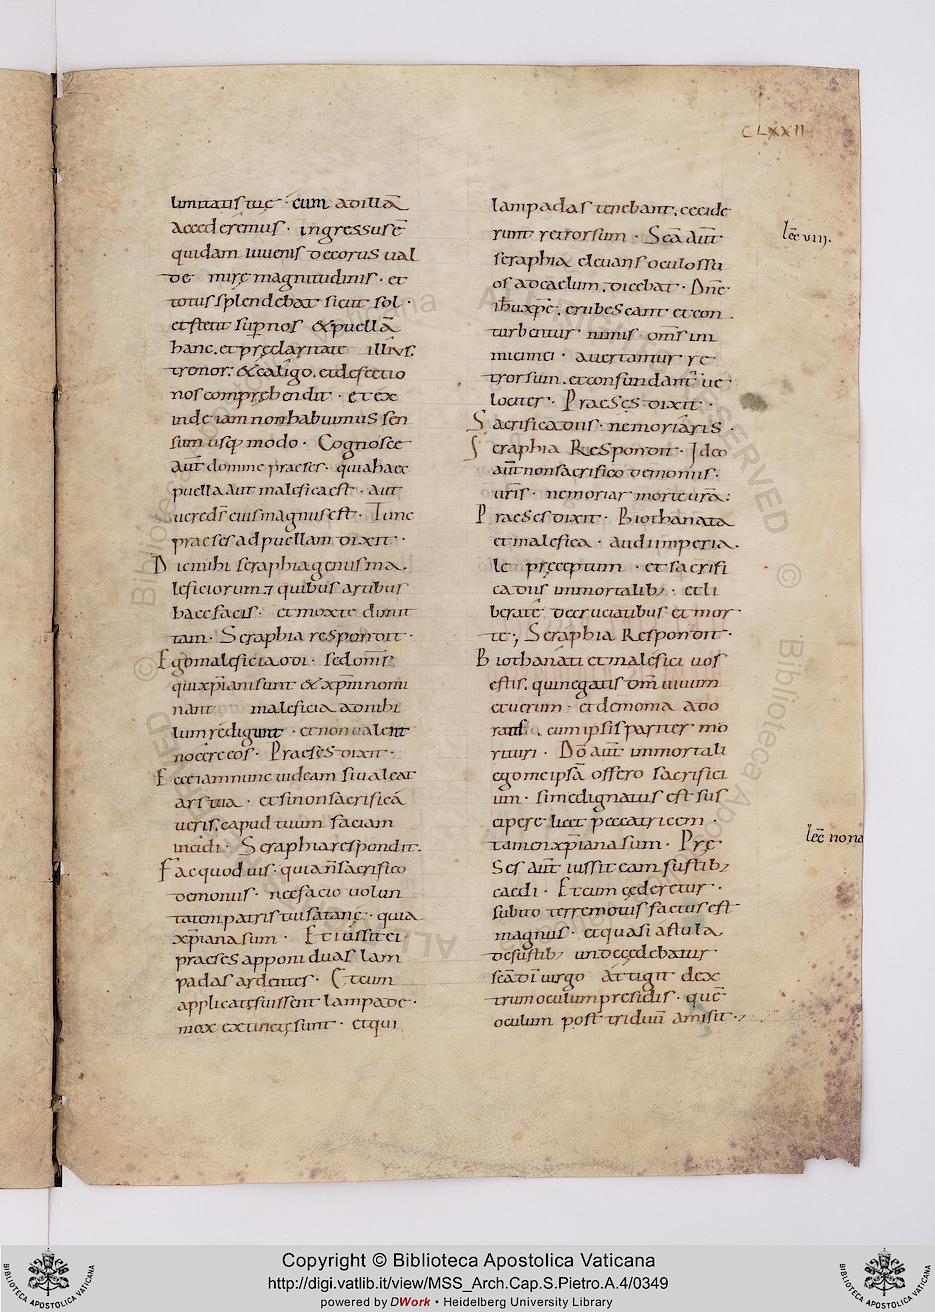 CLXXII
limitatis tuę · cum ad illā
accederemus · ingressus ē
quidam iuuenis decorus ual
de mirę magnitudinis · et
totus splendebat sicut sol ·
et stetit sup nos & puellā
hanc. et pręclaritate illius.
tronor; & caligo. et defectio
nos comprehendit · et ex
inde iam non habuimus sen
sum usq; modo · Cognosce
aūt domine praeses · quia haec
puella aut malefica est · aut
uere dr̄ eius magnus est · Tunc
praeses ad puellam dixit ·
Dic mihi seraphia genus ma.
leficiorum ⁊ quibus artibus
haec facis · et mox te dimit
tam · Seraphia respondit ·
Ego maleficia odi · sed om̄s
qui xp̄iani sunt & xp̄m nomi
nant maleficia ad nihi
lum redigunt · et non ualent
nocere eos · Praeses dixit ·
Ecce iam nunc uideam si ualeat
ars tua · et si non sacrificā
ueris. capud tuum faciam
incidi · Seraphia respondit ·
Fac quod uis · quia n̄ sacrifico
demoniis · nec facio uolun
tatem patris tui satanę · quia
xp̄iana sum · Et iussit ei
praeses apponi duas lam
padas ardentes · Et cum
applicatę fuissent lampade ·
mox extinctę sunt · et qui
lampadas tenebant. cecide
runt retrorsum · Sc̄a aūt
seraphia eleuans oculos su
os ad caelum. dicebat · Dn̄e
ih̄u xp̄e. erubescant et con
turbentur nimis om̄s in
imici mei · auertantur re
trorsum. et confundant̄ ue
lociter · Praeses dixit ·
Sacrifica diis · ne moriaris ·
Seraphia Respondit · Ideo
aūt non sacrifico demoniis ·
uris · ne moriar morte urā :
Praeses dixit · Biothanata
et malefica · audi imperia.
le pręceptum · et sacrifi
ca diis immortalib; · et li
berate de cruciatibus et mor
te ·; Seraphia Respondit ·
Biothanati et malefici uos
estis. qui negatis dm̄ uiuum
et uerum · et demonia ado
rantes. cum ipsis pariter mo
rituri · Dō aūt immortali
ego me ipsā offero sacrifici
um · si me dignatus est sus
cipere licet peccatricem ·
tamen xp̄iana sum · Prę
ses aūt iussit eam fustib;
caedi · Et cum cęderetur ·
subito terremotus factus est
magnus · et quasi astula
de fustib; unde cędebatur
sc̄a dī uirgo attigit dex
trum oculum presidis · quē
oculum post triduū amisit ·,
lec̄ viij.
lec̄ nona
Copyright © Biblioteca Apostolica Vaticana
http://digi.vatlib.it/view/MSS_Arch.Cap.S.Pietro.A.4/0349
powered by DWork • Heidelberg University Library